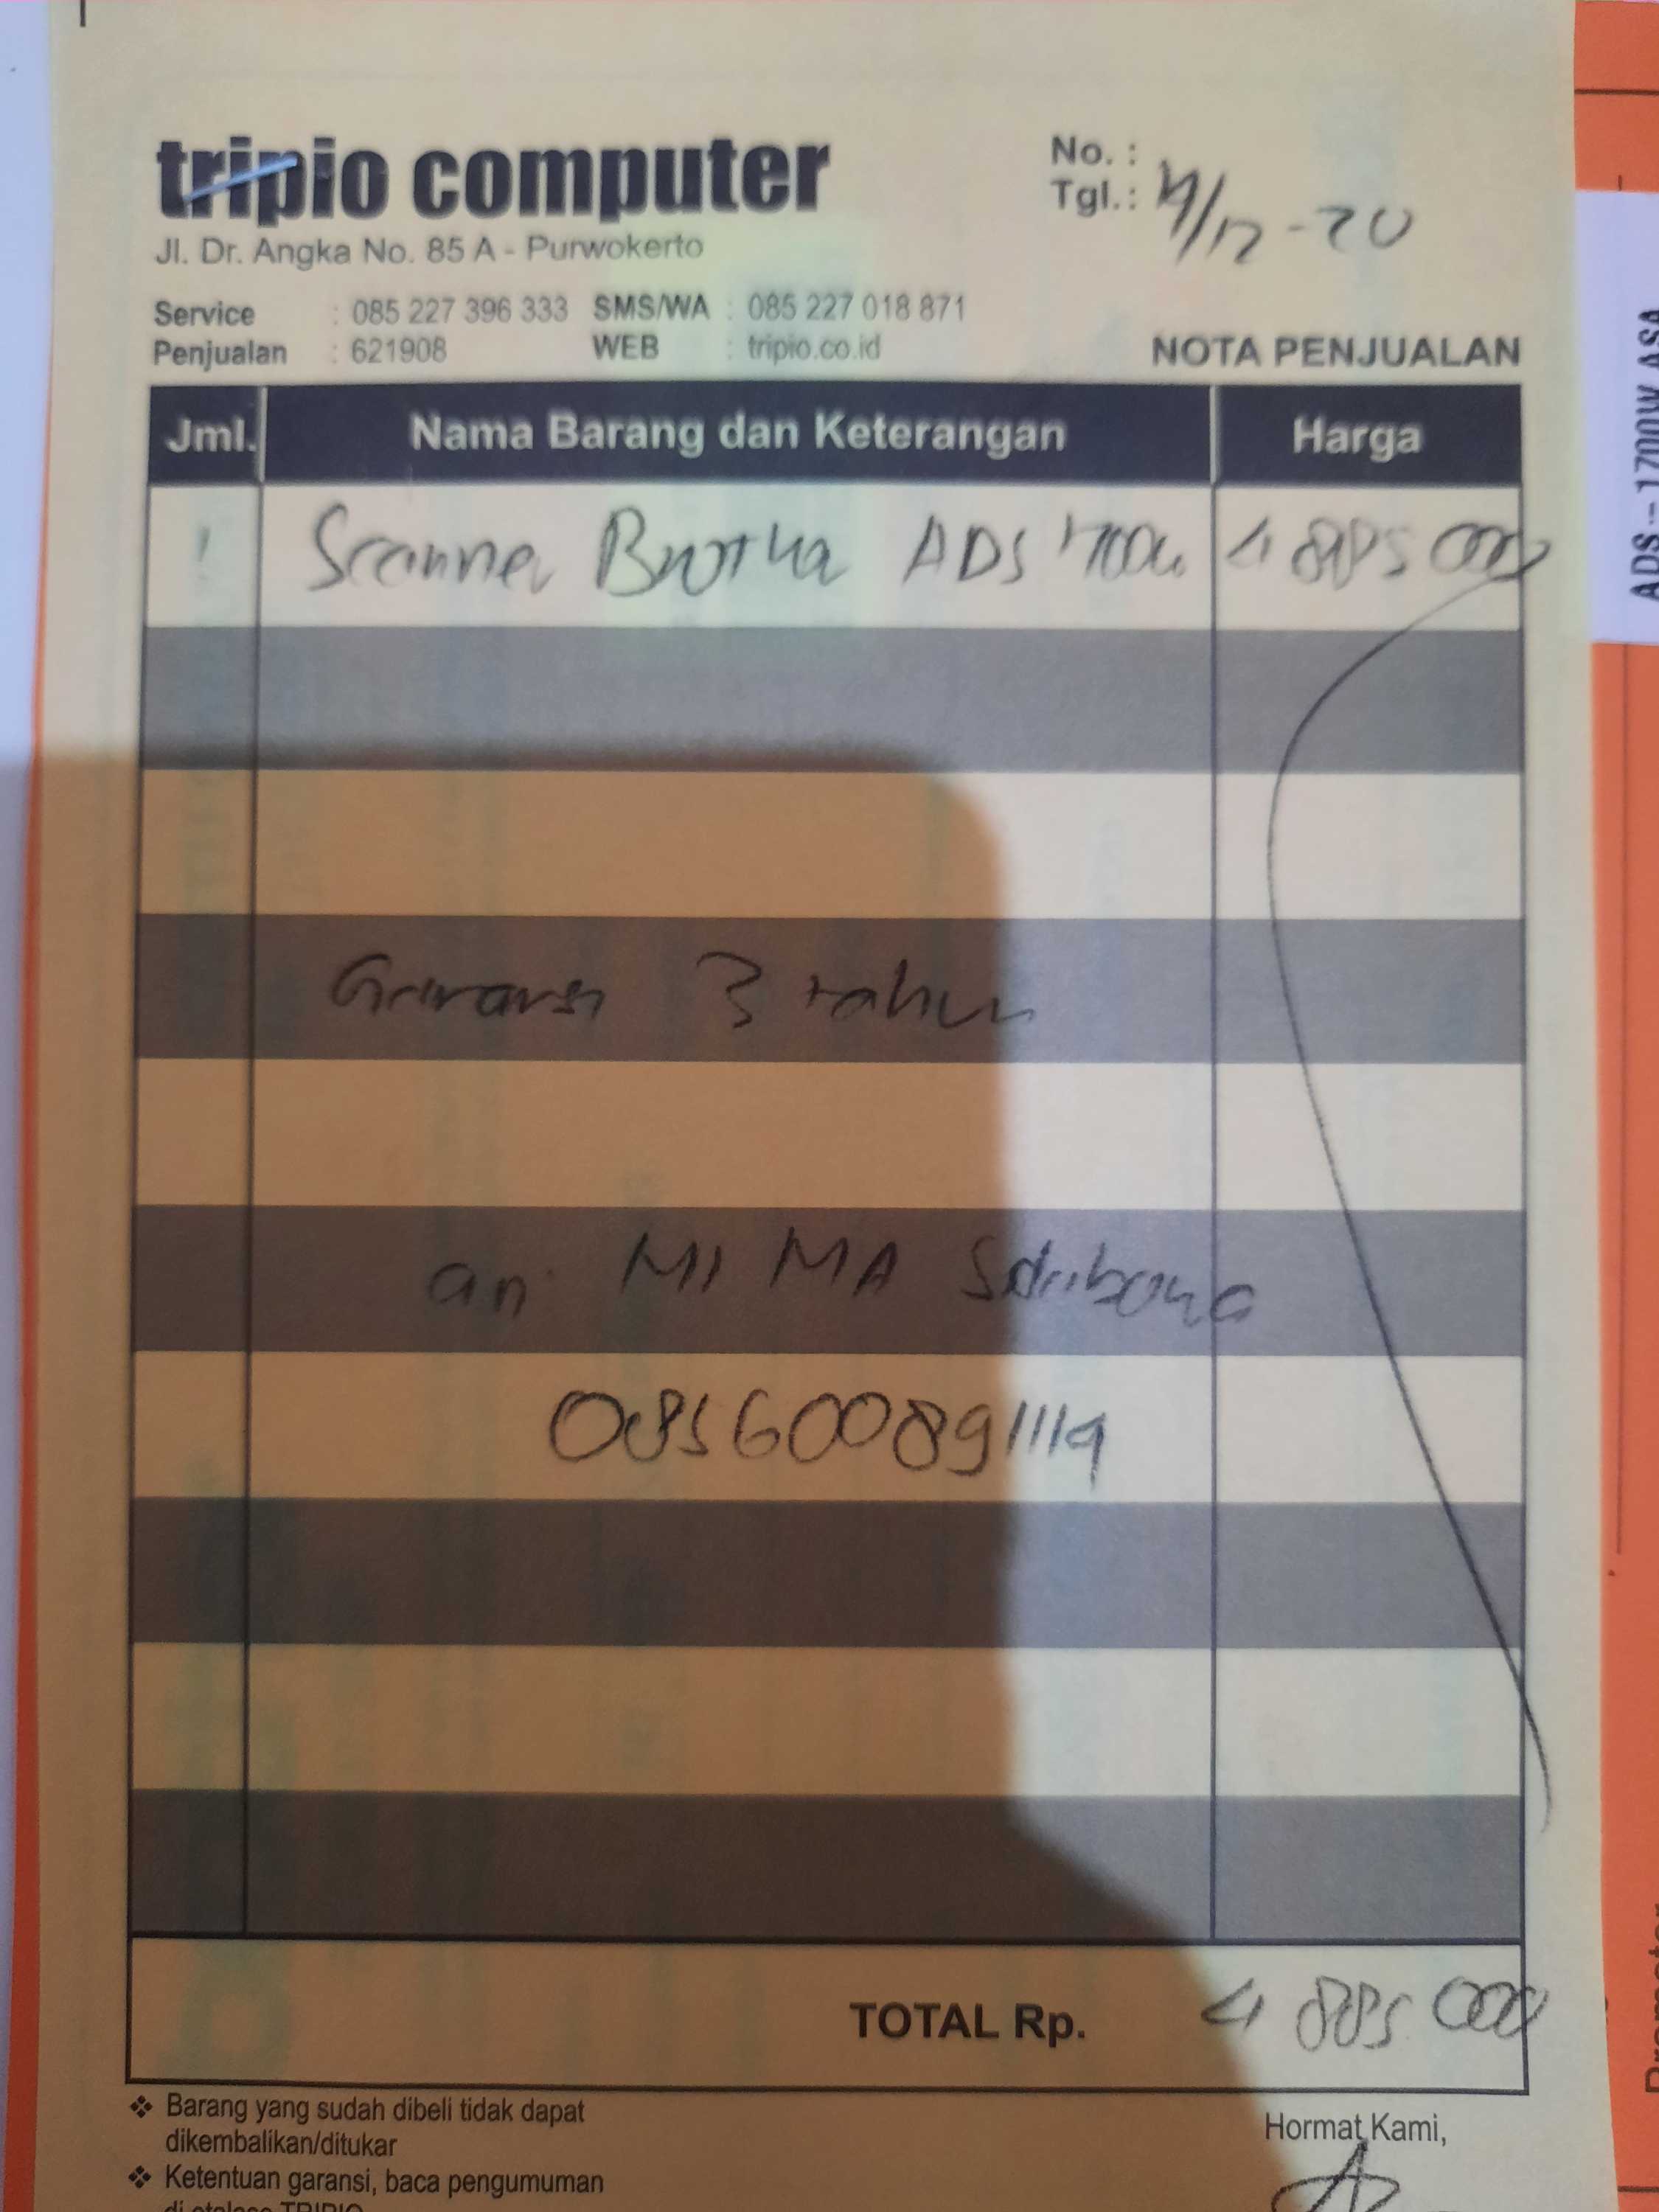 tripio computer
Jl. Dr. Angka No. 85 A - Purwokerto
No. :
Tgl. : /12 - 20
Service : 085 227 396 333 SMS/WA : 085 227 018 871
Penjualan : 621908 WEB : tripio.co.id
NOTA PENJUALAN
Jml. Nama Barang dan Keterangan Harga
1 Scanner Brother ADS 4 885 000
Garansi 3 tahun
an MI MA
085600891119
TOTAL Rp. 4 885 000
Barang yang sudah dibeli tidak dapat
dikembalikan/ditukar
Ketentuan garansi, baca pengumuman
di etalase TRIPIO
Hormat Kami,
ADS-1700W ASA
Promotor